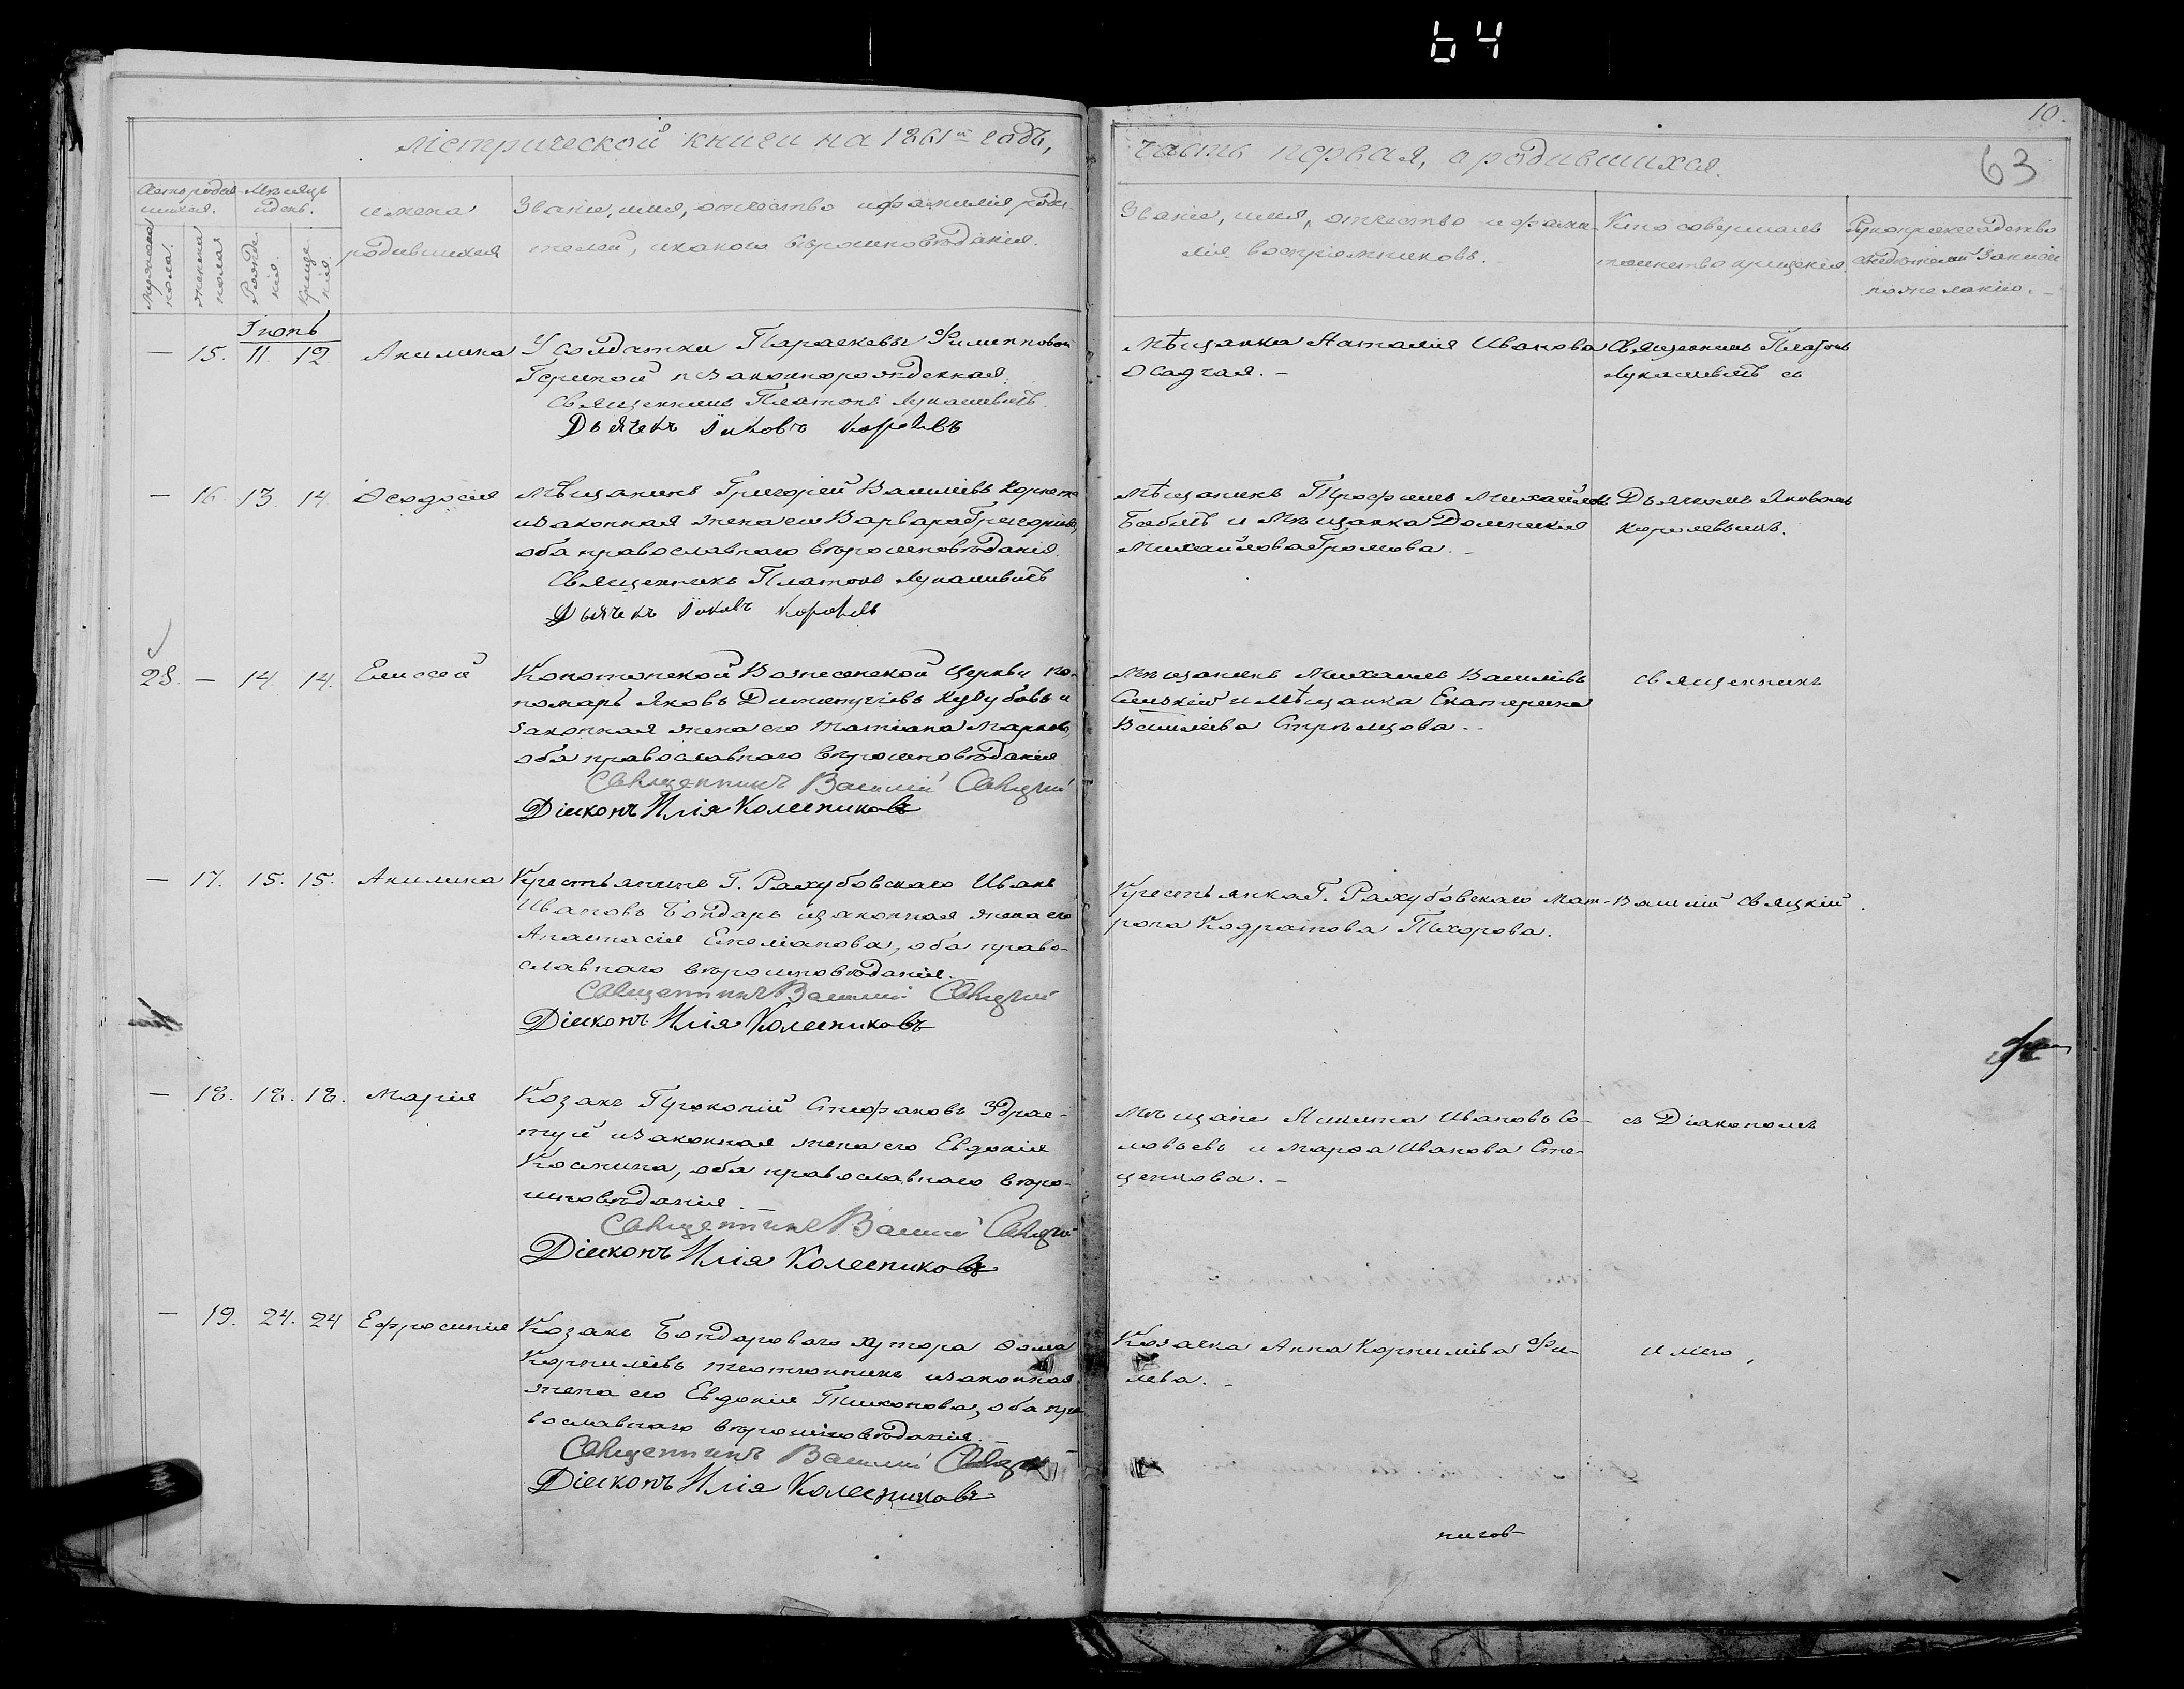 64
10.
63
Метрической книги на 1861й годъ,
часть первая, о родившихся.
Счетъ родив-
шихся.
Мужеска
пола.
женска
пола
Мѣсяцъ
и день.
Рожде-
нія.
Креще-
нія.
имена
родившихся
Званіе, имя, отчество и фамилія роди-
телей, и какого вѣроисповѣданія.
Званіе, имя, отчество и фами-
лія воспріемниковъ.
Кто совершалъ
таинство крещенія.
Рукоприкладство
свидѣтелей записи
по желанію.
Іюнь
— 15. 11 12 Акилина
У солдатки Параскевы Филипповой
незаконнорожденная.
Священникъ Платонъ Лукашевичъ
Дьячекъ Іяковъ Королевъ
Мѣщанка Наталія Иванова
Осадчая.
Священникъ Платонъ
Лукашевичъ съ
— 16. 13. 14 Ѳеодосія
Мѣщанинъ Григорій Василіевъ
и законная жена его Варвара Григоріева,
оба православнаго вѣроисповѣданія.
Священникъ Платонъ Лукашевичъ
Дьячекъ Іяковъ Королевъ
Мѣщанинъ Трофимъ Михайловъ
Бабичъ и Мѣщанка Домникія
Михайлова Громова.
Дьячкомъ Яковомъ
Королевымъ.
28. — 14. 14. Елисей
Конотопской Вознесенской Церкви по-
номарь Яковъ Димитріевъ и
законная жена его Татіана Маркова,
оба православнаго вѣроисповѣданія
Священникъ Василій Свяцкій
Діаконъ Илія Колесниковъ
Мѣщанинъ Михаилъ Василіевъ
и Мѣщанка Екатерина
Василіева Стрѣльцова.
Священникъ
— 17. 15. 15. Акилина
Крестьянинъ Г. Рахубовскаго Иванъ
Ивановъ Бондарь и законная жена его
Анастасія Емеліанова, оба право-
славнаго вѣроисповѣданія.
Священникъ Василій Свяцкій
Діаконъ Илія Колесниковъ
Крестьянка Г. Рахубовскаго Мат-
рона Кодратова Тхорова.
Василій Свяцкій
— 18. 18. 18. Марія
Козакъ Прокопій Стефановъ Здрас-
туй и законная жена его Евдокія
Космина, оба православнаго вѣро-
исповѣданія.
Священникъ Василій Свяцкій
Діаконъ Илія Колесниковъ
Мѣщане Никита Ивановъ Со-
ловьевъ и Марѳа Иванова Сте-
ценкова.
съ Діакономъ
— 19. 24. 24 Ефросинія
Козакъ Бондарового хутора Ѳома
Корниліевъ и законная
жена его Евдокія Тихонова, оба пра-
вославнаго вѣроисповѣданія.
Священникъ Василій Свяцкій
Діаконъ Илія Колесниковъ
Козачка Анна Корниліева Фи-
лева.
Иліею,
нигов-